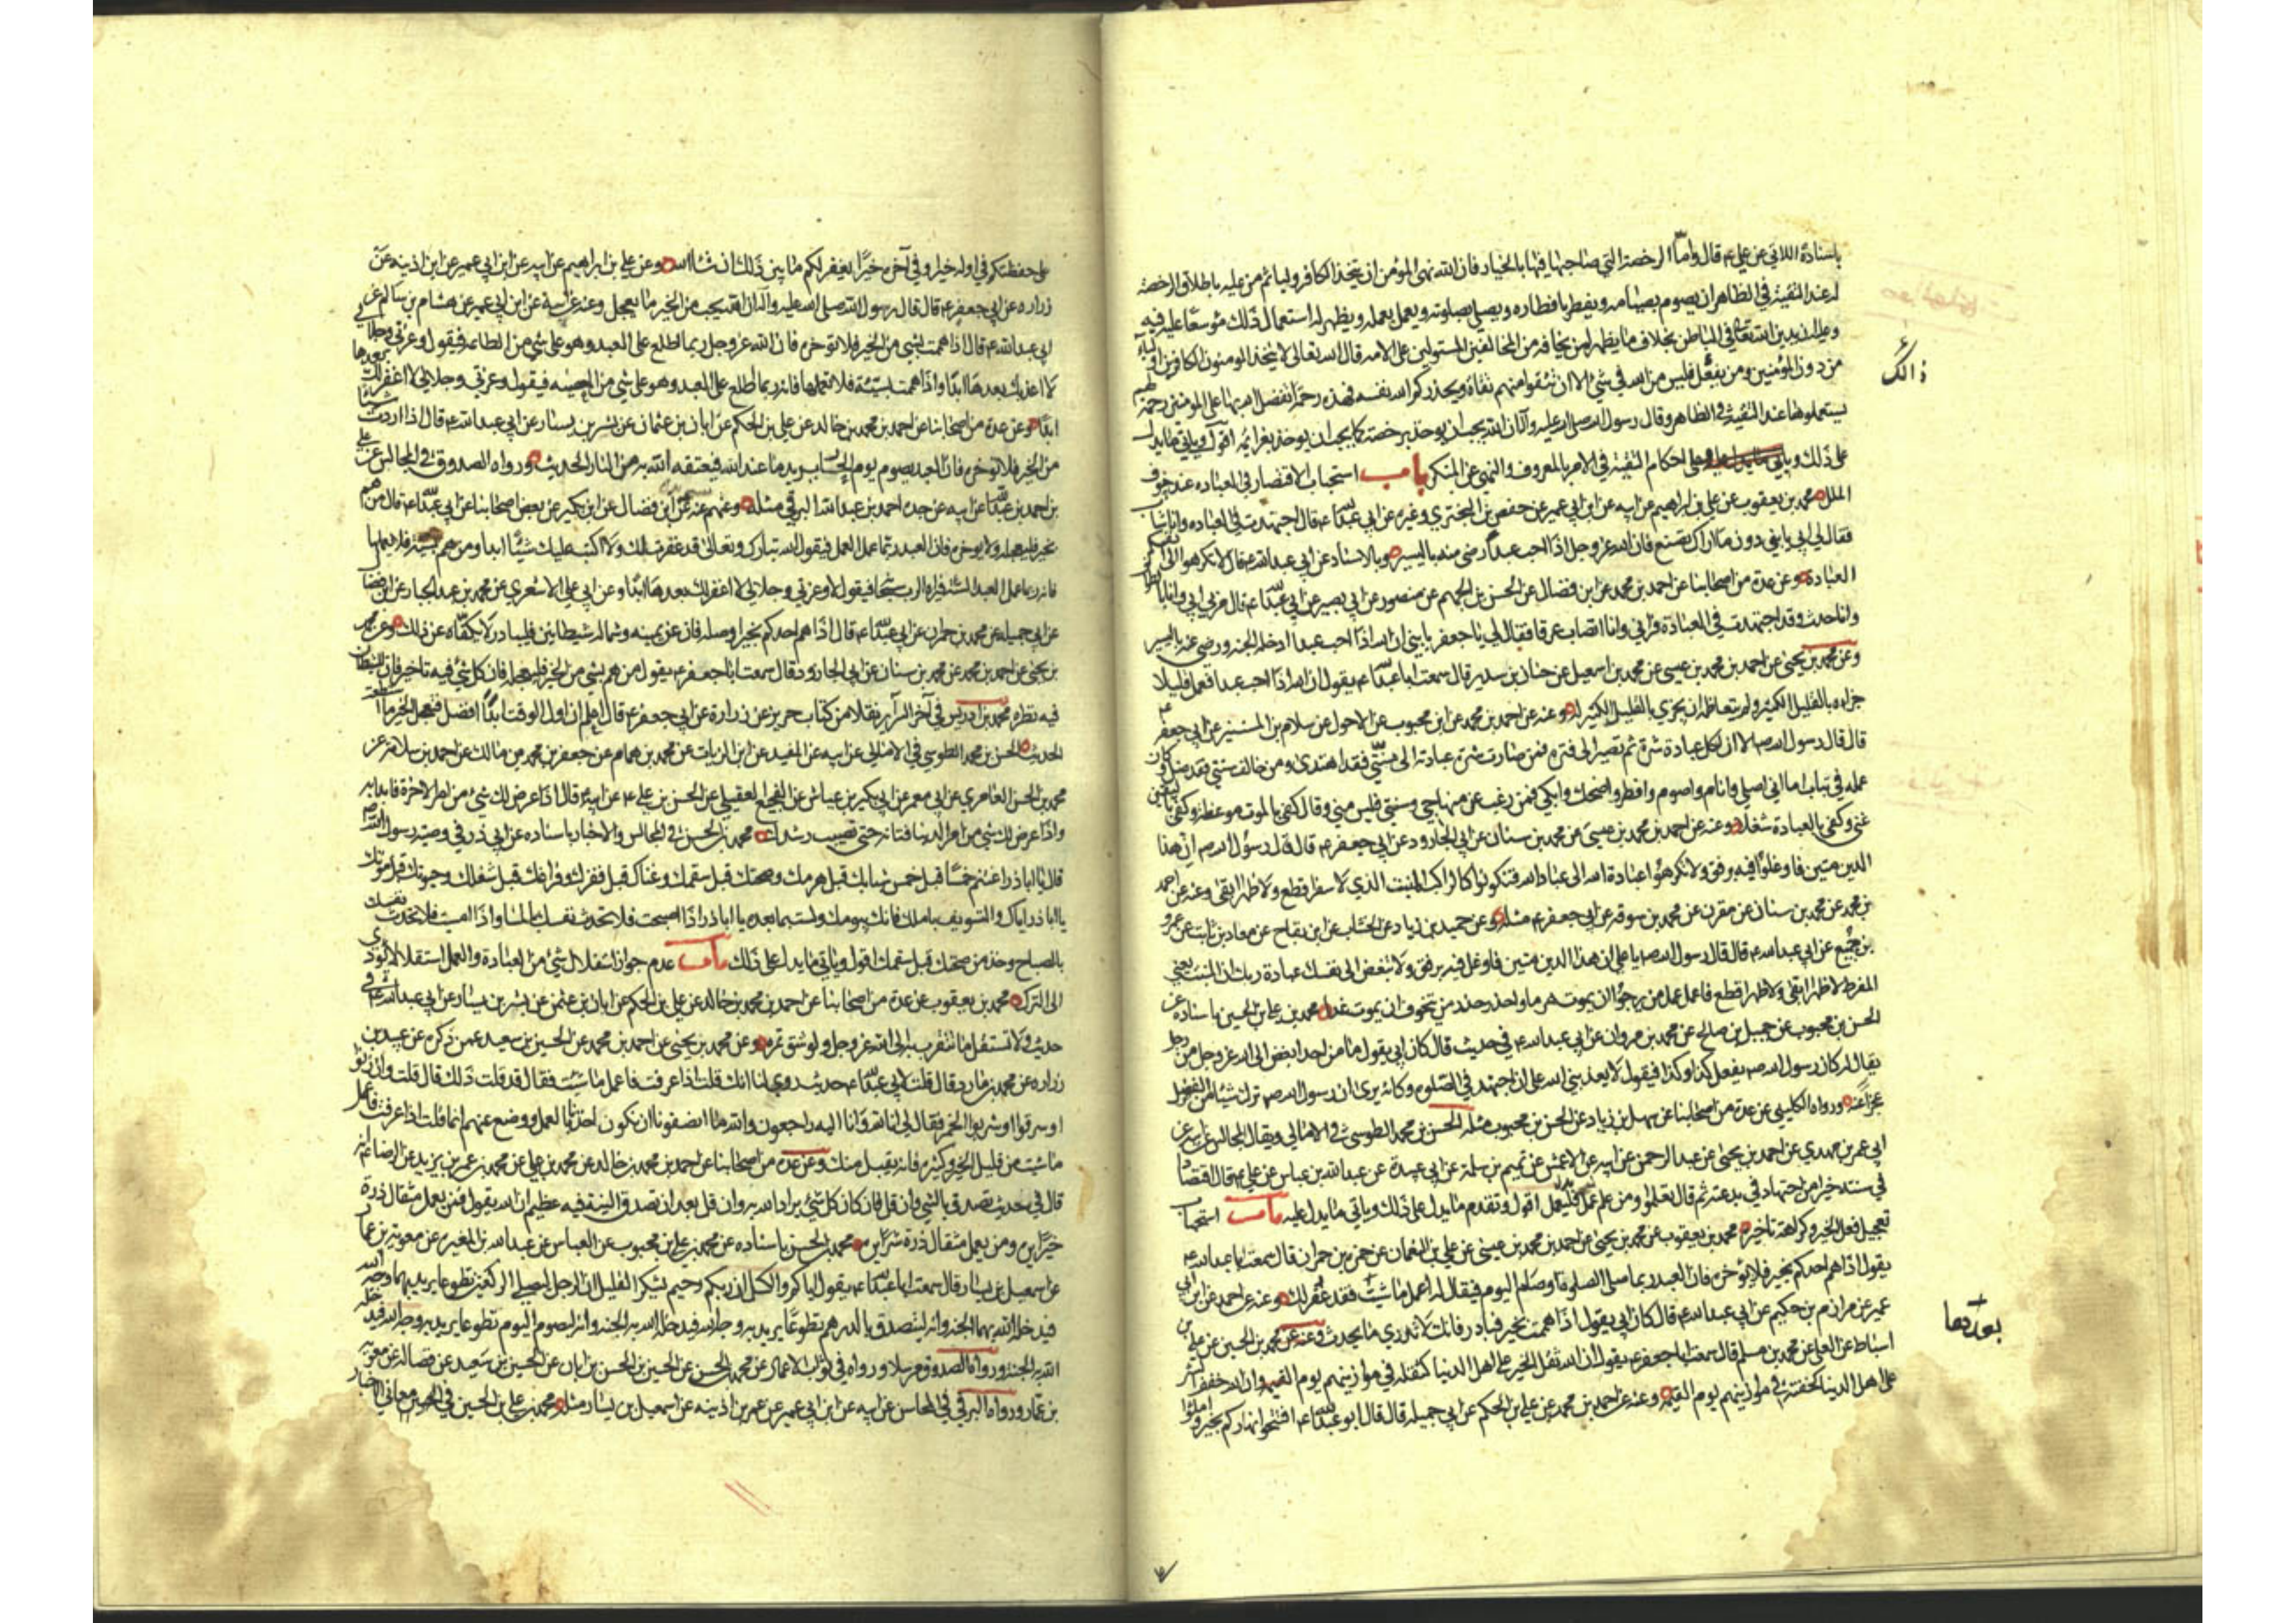 باسناده الاتي عن علي ع قال واما الرخصة التي صاحبها فيها بالخيار فان الله نهى المؤمن ان يتخذ الكافر وليا ثم من عليه باطلاق الرخصة
له عند التقية في الظاهر ان يصوم بصيامه ويفطر بافطاره ويصلي بصلوته ويعمل بعمله ويظهر له استعمال ذلك موسعا عليه فيه
وعليه ان يدين الله تعالى في الباطن بخلاف ما يظهر لمن يخافه من المخالفين المستولين على الامه قال الله تعالى لا يتخذ المومنون الكافرين اولياء
من دون المؤمنين ومن يفعل ذلك فليس من الله في شئ الا ان تتقوا منهم تقاة ويحذركم الله نفسه فهذه رحمة تفضل الله بها على المومنين رحمة لهم
يستعملوها عند التقية في الظاهر وقال رسول الله صلى الله عليه وآله ان الله يحب ان يوخذ برخصه كما يحب ان يوخذ بعزائمه اقول وياتي ما يدل
على ذلك وياتي احكام التقية في الامر بالمعروف والنهي عن المنكر باب استحباب الاقتصار في العباده عند خوف
الملل محمد بن يعقوب عن علي بن ابراهيم عن ابيه عن ابن ابي عمير عن حفص بن البختري وغيره عن ابي عبد الله ع قال اجتهدت في العباده وانا شاب
فقال لي ابي يا بني دون ما اراك تصنع فان الله عز وجل اذا احب عبدا رضى منه باليسير وبالاسناد عن ابي عبد الله ع قال لا تكرهوا الى انفسكم
العبادة وعن عدة من اصحابنا عن احمد بن محمد عن ابن فضال عن الحسن بن الجهم عن منصور عن ابي بصير عن ابي عبد الله ع قال مر بي ابي وانا بالطواف
وانا حدث وقد اجتهدت في العبادة فراني وانا اتصاب عرقا فقال لي يا جعفر يا بني ان الله اذا احب عبدا ادخله الجنه ورضى عنه باليسير
وعن محمد بن يحيى عن احمد بن محمد بن عيسى عن محمد بن اسمعيل عن حنان بن سدير قال سمعت ابا عبد الله ع يقول ان الله اذا احب عبدا فعمل قليلا
جزاه بالقليل الكثير ولم يتعاظمه ان يجزي بالقليل الكثير له وعنه عن احمد بن محمد عن ابن محبوب عن الاحول عن سلام بن المستنير عن ابي جعفر ع
قال قال رسول الله ص الا ان لكل عبادة شرة ثم تصير الى فتره فمن صارت شرة عبادته الى سنتي فقد اهتدى ومن خالف سنتي فقد ضل وكان
عمله في تباب اما اني اصلي وانام واصوم وافطر واضحك وابكي فمن رغب عن منهاجي وسنتي فليس مني وقال كفى بالموت موعظة وكفى باليقين
غنى وكفى بالعبادة شغلا وعنه عن احمد بن محمد بن عيسى عن محمد بن سنان عن ابي الجارود عن ابي جعفر ع قال قال رسول الله ص ان هذا
الدين متين فاوغلوا فيه برفق ولا تكرهوا عبادة الله الى عباد الله فتكونوا كالراكب المنبت الذي لا سفرا قطع ولا ظهرا ابقى وعنه عن احمد
بن محمد عن محمد بن سنان عن مقرن عن محمد بن سوقه عن ابي جعفر ع مثله وعن حميد بن زياد عن الخشاب عن ابن بقاح عن معاذ بن ثابت عن عمرو
بن جميع عن ابي عبد الله ع قال قال رسول الله ص يا علي ان هذا الدين متين فاوغل فيه برفق ولا تبغض الى نفسك عبادة ربك ان المنبت يعني
المفرط لا ظهرا ابقى ولا ظهرا قطع فاعمل عمل من يرجو ان يموت هرما واحذر حذر من يتخوف ان يموت غدا محمد بن علي بن الحسين باسناده عن
الحسن بن محبوب عن جميل بن صالح عن محمد بن مروان عن ابي عبد الله ع في حديث قال كان ابي يقول ما من احد ابغض الى الله عز وجل من رجل
يقال له كان رسول الله ص يفعل كذا وكذا فيقول لا يعذبني الله على ان اجتهد في الصلوه وكانه يرى ان رسول الله ص ترك شيئا من الفضل
عجزا عنه ورواه الكليني عن عدة من اصحابنا عن سهل بن زياد عن الحسن بن محبوب مثله الحسن بن محمد الطوسي في الامالي ويقال المجالس عن ابيه عن
ابي عمر بن مهدي عن احمد بن يحيى عن عبد الرحمن عن ابيه عن الاعمش عن تميم بن سلمة عن ابي عبيدة عن عبد الله بن عباس عن علي ع قال اقتصاد
في سنه خير من اجتهاد في بدعه ثم قال تعلموا ومن علم فليعمل اقول وتقدم ما يدل على ذلك وياتي ما يدل عليه باب استحباب
تعجيل فعل الخير وكراهة تاخيره محمد بن يعقوب عن محمد بن يحيى عن احمد بن محمد بن عيسى عن علي بن النعمان عن حمزه بن حمران قال سمعت ابا عبد الله ع
يقول اذا هم احدكم بخير فلا يؤخره فان العبد ربما صلى الصلوة او صام اليوم فيقال له اعمل ما شئت فقد غفر لك وعنه عن احمد عن ابن ابي
عمير عن مرازم بن حكيم عن ابي عبد الله ع قال كان ابي يقول اذا هممت بخير فبادر فانك لا تدري ما يحدث وعنه عن محمد بن الحسين عن علي بن
اسباط عن العلا عن محمد بن مسلم قال سمعت ابا جعفر ع يقول ان الله ثقل الخير على اهل الدنيا كثقله في موازينهم يوم القيمه وان الله خفف الشر
على اهل الدنيا كخفته في موازينهم يوم القيمه وعنه عن احمد بن محمد عن علي بن الحكم عن ابي جميله قال قال ابو عبد الله ع افتتحوا نهاركم بخير واملوا
ذالك
بعدها
على حفظتكم في اوله خيرا وفي آخره خيرا يغفر لكم ما بين ذلك ان شا الله وعن علي بن ابراهيم عن ابيه عن ابن ابي عمير عن ابن اذينه عن
زراره عن ابي جعفر ع قال قال رسول الله صلى الله عليه وآله ان الله يحب من الخير ما يعجل وعنه عن ابيه عن ابن ابي عمير عن هشام بن سالم عن
ابي عبد الله ع قال اذا هممت بشي من الخير فلا توخره فان الله عز وجل ربما اطلع على العبد وهو على شي من الطاعه فيقول وعزتي وجلالي
لا اعذبك بعدها ابدا واذا هممت بسيئة فلا تعملها فانه ربما اطلع على العبد وهو على شي من المعصيه فيقول وعزتي وجلالي لا اغفر لك بعدها
ابدا وعن عدة من اصحابنا عن احمد بن محمد بن خالد عن علي بن الحكم عن ابان بن عثمان عن بشر بن يسار عن ابي عبد الله ع قال اذا اردت شيئا
من الخير فلا توخره فان العبد يصوم يوم الحار يريد ما عند الله فيعتقه الله به من النار الحديث ورواه الصدوق في المجالس عن علي
بن احمد بن عبد الله عن ابيه عن جده احمد بن عبد الله البرقي مثله وعنهم عنه عن ابن فضال عن ابن بكير عن بعض اصحابنا عن ابي عبد الله ع قال من هم
بخير فليعجله ولا يوخره فان العبد ربما عمل العمل فيقول الله تبارك وتعالى قد غفرت لك ولا اكتب عليك شيئا ابدا ومن هم بسيئه فلا يعملها
فانه ربما عمل العبد السيئه فيراه الرب سبحانه فيقول لا وعزتي وجلالي لا اغفر لك بعدها ابدا وعن ابي علي الاشعري عن محمد بن عبد الجبار عن ابن فضال
عن ابي جميله عن محمد بن حمران عن ابي عبد الله ع قال اذا هم احدكم بخير او صله فان عن يمينه وشماله شيطانين فليبادر لا يكفاه عن ذلك وعن محمد
بن يحيى عن احمد بن محمد عن محمد بن سنان عن ابي الجارود قال سمعت ابا جعفر ع يقول من هم بشي من الخير فليعجله فان كل شئ فيه تاخير فان للشيطان
فيه نظره محمد بن ادريس في آخر السرآير نقلا من كتاب حريز عن زرارة عن ابي جعفر ع قال اعلم ان اول الوقت ابدا افضل فتعجل الخير ما استطعت
الحديث الحسن بن محمد الطوسي في الامالي عن ابيه عن المفيد عن ابن الزيات عن محمد بن همام عن جعفر بن محمد بن مالك عن احمد بن سلامه عن
محمد بن الحسن العامري عن ابي معمر عن ابي بكير بن عياش عن الفجيع العقيلي عن الحسن بن علي ع عن ابيه ع قال اذا عرض لك شئ من امر الاخرة فابدا به
واذا عرض لك شي من امر الدنيا فتانه حتى تصيب رشدك محمد بن الحسن في المجالس والاخبار باسناده عن ابي ذر في وصية رسول الله ص
قال يا ابا ذر اغتنم خمسا قبل خمس شبابك قبل هرمك وصحتك قبل سقمك وغناك قبل فقرك وفراغك قبل شغلك وحيوتك قبل موتك
يا ابا ذر اياك والتسويف باملك فانك بيومك ولست بما بعده يا ابا ذر اذا اصبحت فلا تحدث نفسك بالمسا واذا امسيت فلا تحدث نفسك
بالصباح وخذ من صحتك قبل سقمك اقول وياتي ما يدل على ذلك باب عدم جواز استقلال شئ من العبادة والعمل استقلالا يؤدي
الى الترك محمد بن يعقوب عن عدة من اصحابنا عن احمد بن محمد بن خالد عن علي بن الحكم عن ابان بن عثمن عن بشر بن يسار عن ابي عبد الله ع في
حديث ولا تستقل ما تتقرب به الى الله عز وجل ولو شق تمره وعن محمد بن يحيى عن احمد بن محمد عن الحسين بن سعيد عمن ذكره عن عبيد بن
زراره عن محمد بن مارد قال قلت لابي عبد الله ع حديث روي لنا انك قلت اذا عرفت فاعمل ما شئت فقال قد قلت ذلك قال قلت وان زنوا
او سرقوا او شربوا الخمر فقال لي انا لله وانا اليه راجعون والله ما انصفونا ان نكون اخذنا بالعمل ووضع عنهم انما قلت اذا عرفت فاعمل
ما شئت من قليل الخير وكثيره فانه يقبل منك وعن عدة من اصحابنا عن احمد بن محمد بن خالد عن محمد بن علي عن محمد بن عمر بن يزيد عن الرضا ع انه
قال في حديث تصدق بالشي وان قل فان كان كل شئ يراد الله به وان قل بعد ان تصدق النية فيه عظيم ان الله يقول فمن يعمل مثقال ذرة
خيرا يره ومن يعمل مثقال ذرة شرا يره محمد بن الحسن باسناده عن محمد بن علي بن محبوب عن العباس عن عبد الله بن المغيره عن معوية بن عمار
عن اسمعيل بن يسار قال سمعت ابا عبد الله ع يقول اياكم والكسل ان ربكم رحيم يشكر القليل ان الرجل ليصلي الركعتين تطوعا يريد بهما وجه الله
فيدخله الله بهما الجنه وانه ليتصدق بالدرهم تطوعا يريد به وجه الله فيدخله الله به الجنه وانه ليصوم اليوم تطوعا يريد به وجه الله فيدخله
الله به الجنه ورواه الصدوق مرسلا ورواه في ثواب الاعمال عن محمد بن الحسن عن الحسين بن الحسن بن ابان عن الحسين بن سعيد عن فضاله عن معوية
بن عمار ورواه البرقي في المحاسن عن ابيه عن ابن ابي عمير عن عمر بن اذينه عن اسمعيل بن يسار مثله محمد بن علي بن الحسين في معاني الاخبار